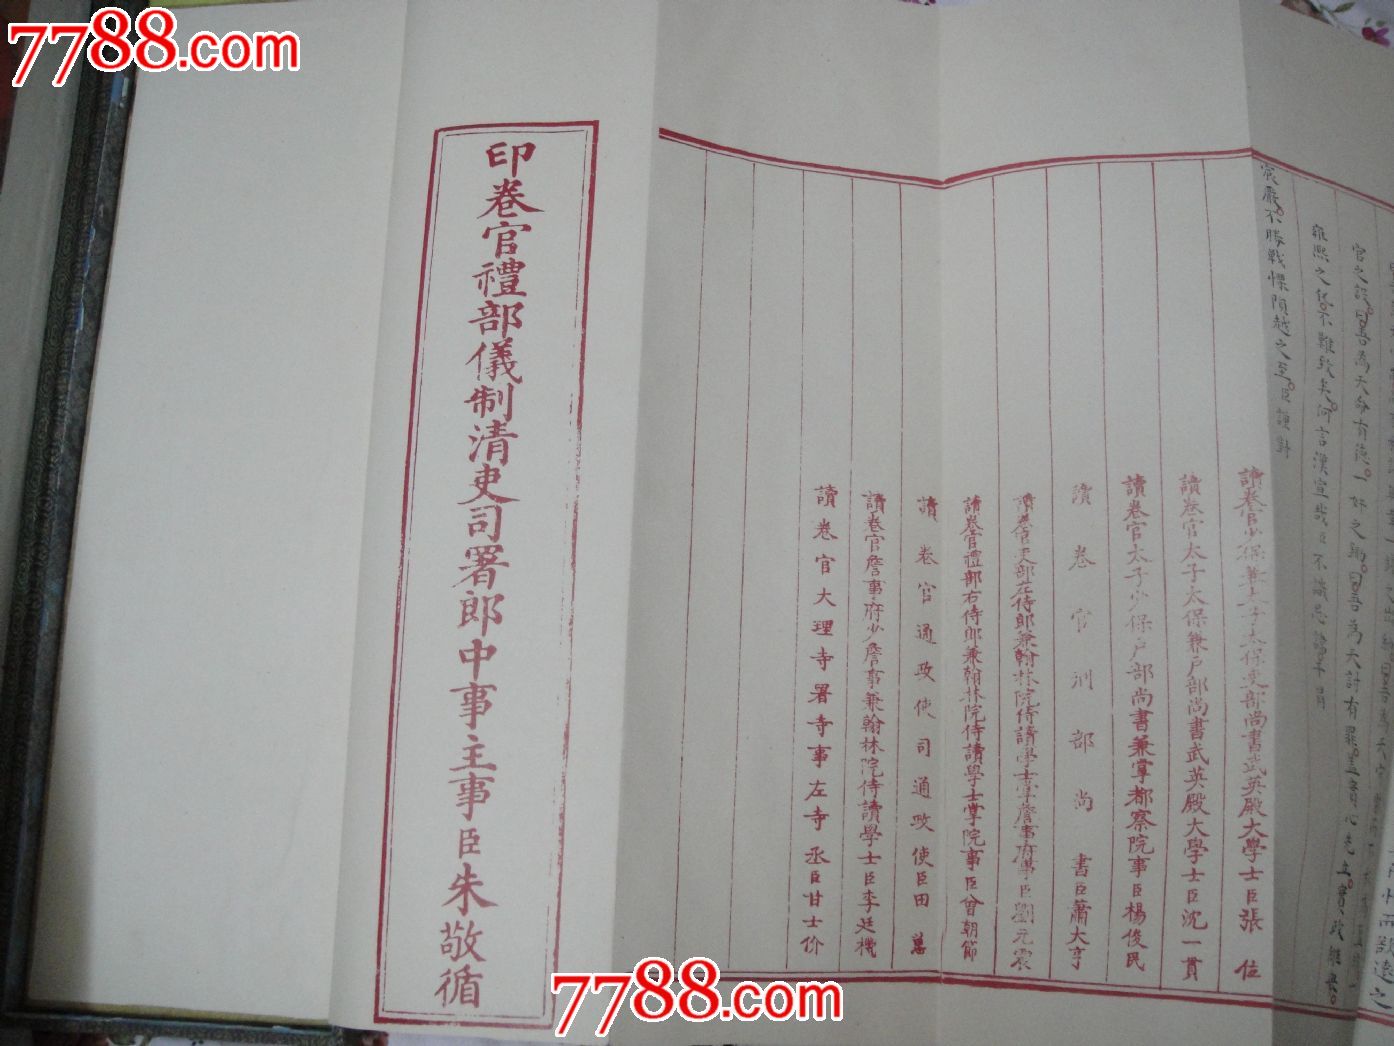 7788.com
7788.com
官之設曰吾為天命有德
雍熙之化不難致矣何言漢宣哉臣不識忌諱干冒
宸嚴不勝戰慄隕越之至臣謹對
讀卷官少保兼太子太保吏部尚書武英殿大學士臣張位
讀卷官太子太保兼戶部尚書武英殿大學士臣沈一貫
讀卷官太子少保戶部尚書兼掌都察院事臣楊俊民
讀卷官刑部尚書臣蕭大亨
讀卷官吏部左侍郎兼翰林院侍讀學士掌詹事府事臣劉元震
讀卷官禮部右侍郎兼翰林院侍讀學士掌院事臣曾朝節
讀卷官通政使司通政使臣田蕙
讀卷官詹事府少詹事兼翰林院侍讀學士臣李廷機
讀卷官大理寺署寺事左寺丞臣甘士价
印卷官禮部儀制清吏司署郎中事主事臣朱敬循
7788.com